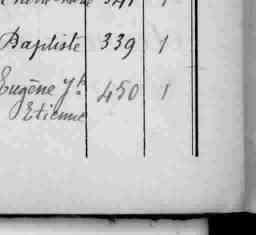 341 1
Baptiste 339 1
Eugène Jh 450 1
Etienne